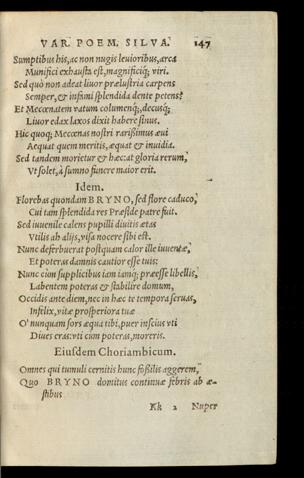 VAR. POEM. SILVA. 147
Sumptibus his, ac non nugis leuioribus, arca
Munifici exhausta est, magnificiq́; viri.
Sed quò non adeat liuor prælustria carpens
Semper, & infimi splendida dente petens?
Et Mecœnatem vatum columenq́;, decusq́;
Liuor edax laxos dixit habere sinus.
Hic quoq; Mecœnas nostri rarißimus æui
Aequat quem meritis, æquat & inuidia.
Sed tandem morietur & hæc: at gloria rerum,
Vt solet, à summo funere maior erit.
Idem.
Florebas quondam BRYNO, sed flore caduco,
Cui tam splendida res Præside patre fuit.
Sed iuuenile calens pupilli diuitis ætas
Vtilis ab alijs, visa nocere sibi est.
Nunc deferbuerat postquam calor ille iuuentæ,
Et poteras damnis cautior esse tuis:
Nunc cùm supplicibus iam iamq́; præesse libellis,
Labentem poteras & stabilire domum,
Occidis ante diem, nec in hæc te tempora seruas,
Infelix, vitæ prosperiora tuæ
O' nunquam fors æqua tibi, puer inscius vti
Diues eras: vti cum poteras, moreris.
Eiusdem Choriambicum.
Omnes qui tumuli cernitis hunc foßilis aggerem,
Quo BRYNO domitus continuæ febris ab æ-
stibus
Kk 2 Nuper